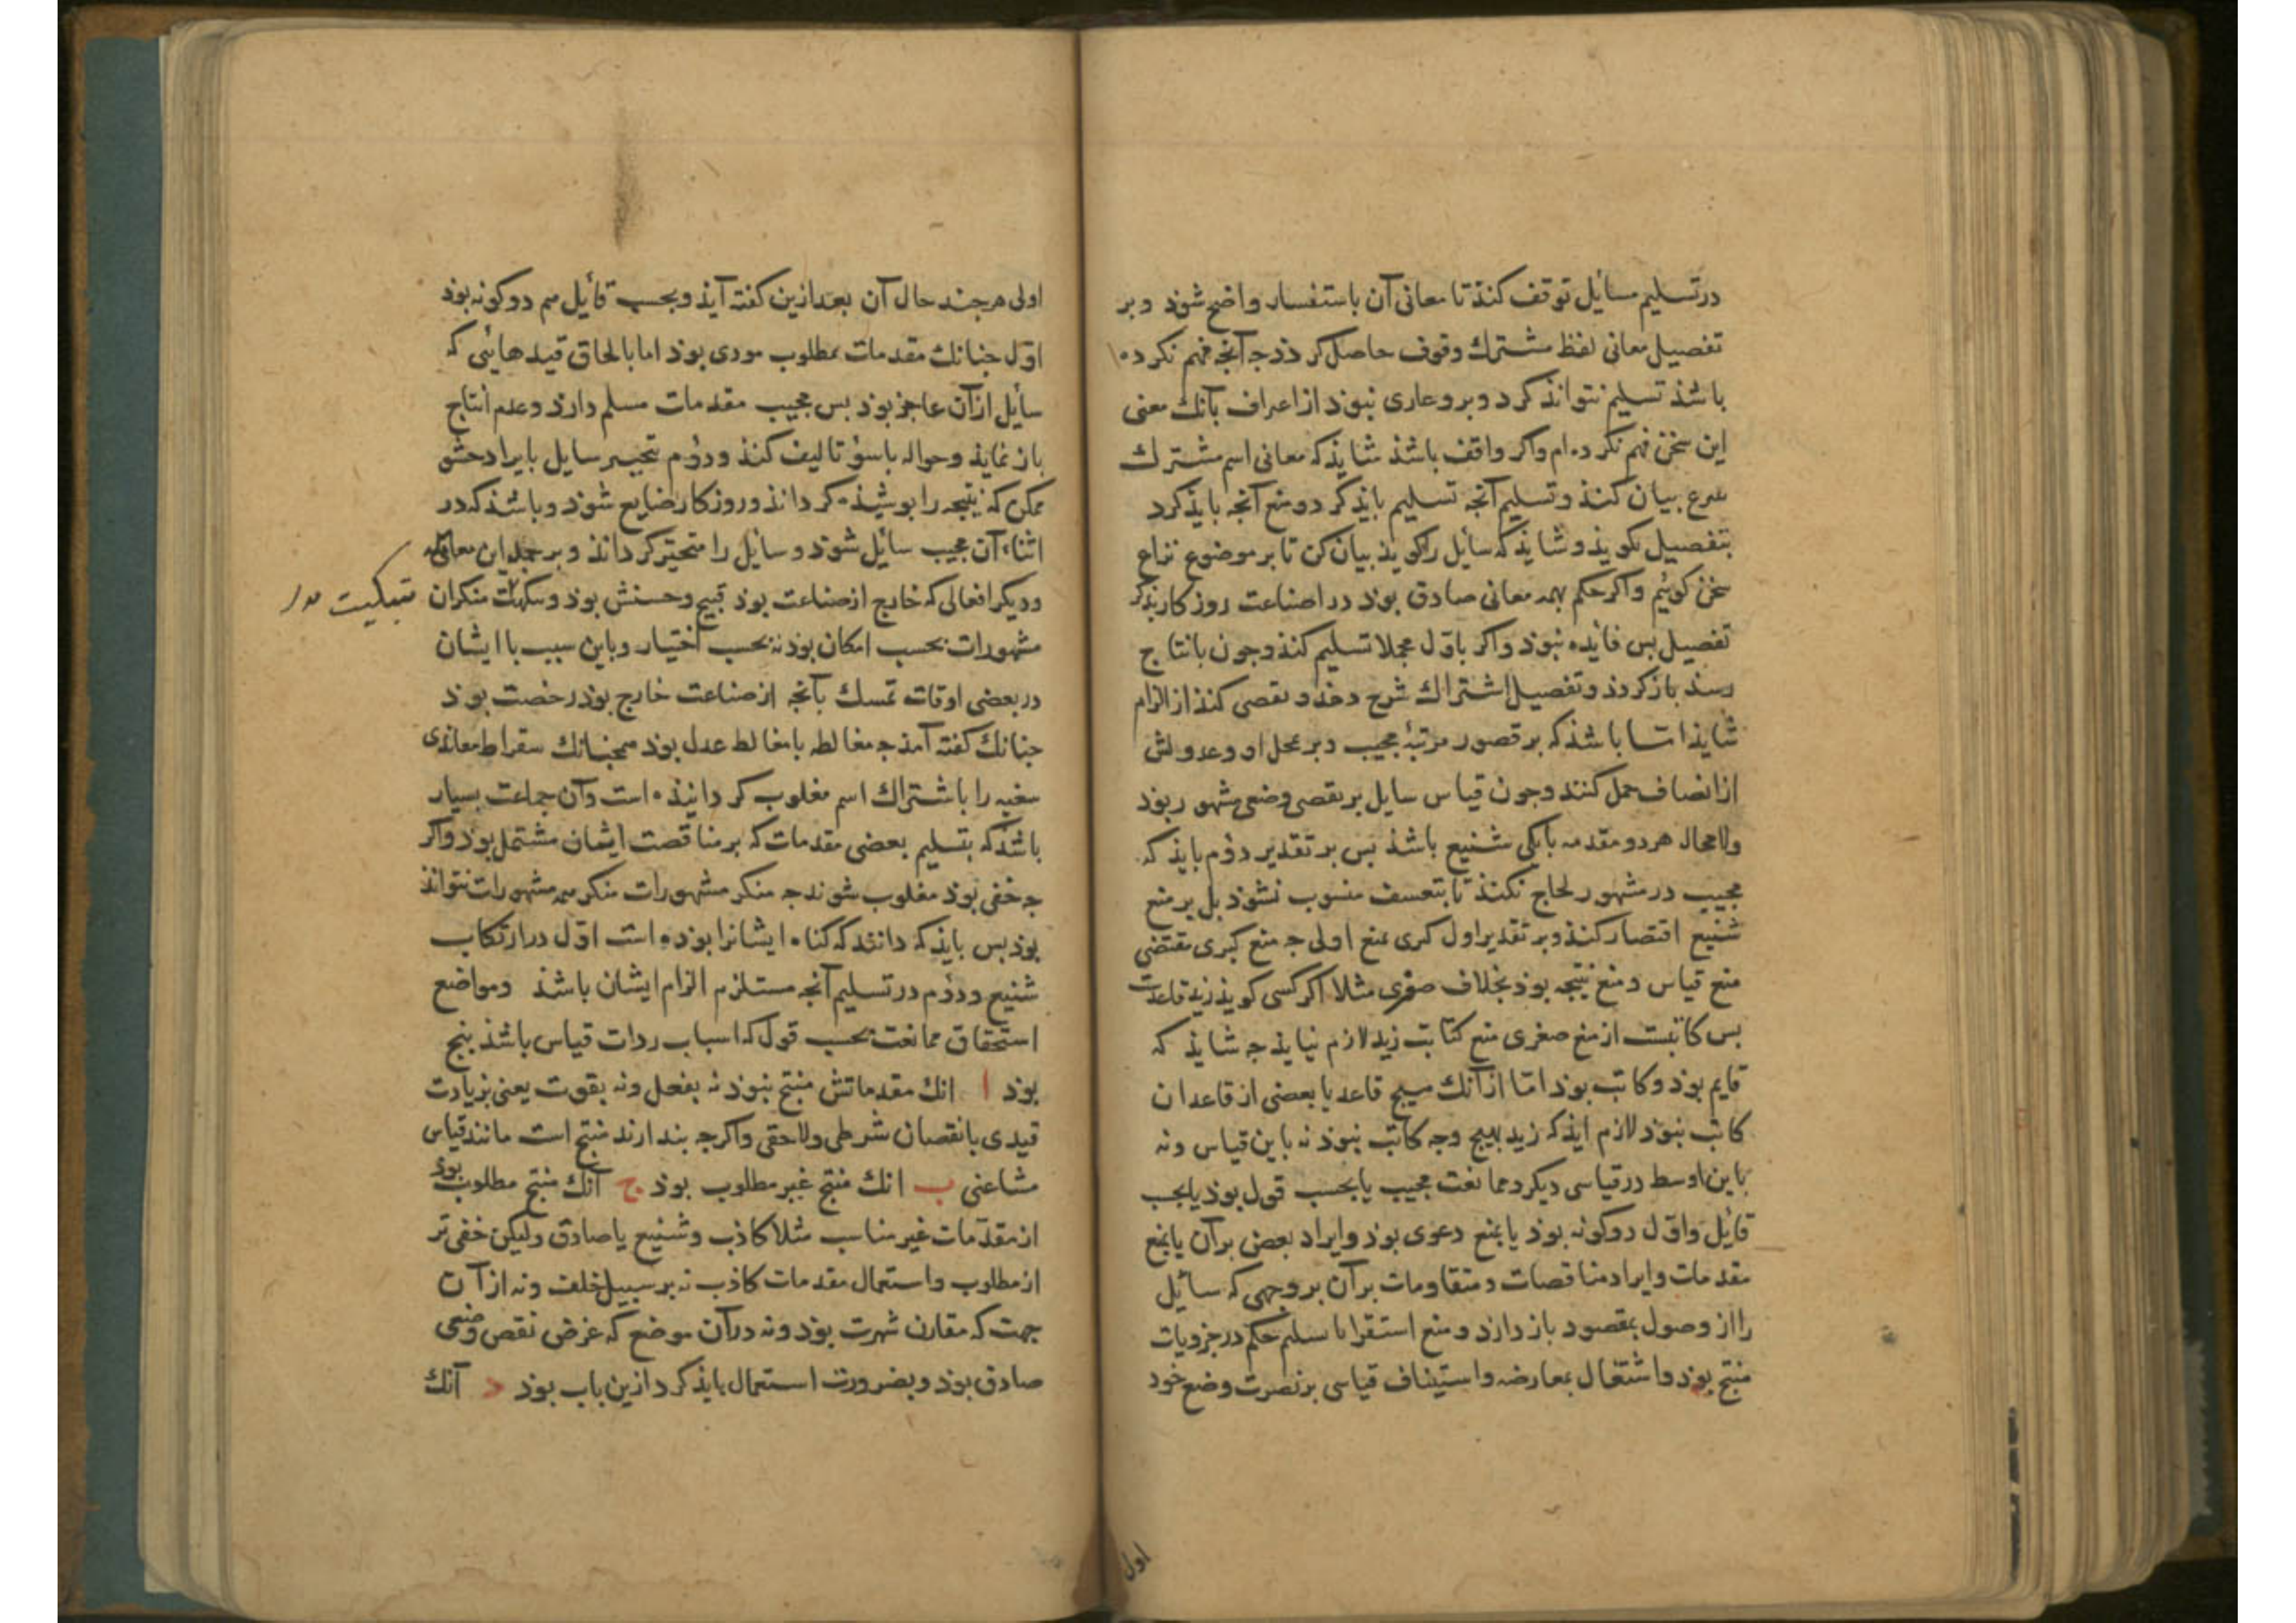 در تسلیم مسائل توقف کنذ تا معانی آن باستفسار واضح شوذ و بر
تفصیل معانی لفظ مشترك وقوف حاصل کرذ ذ جه آنجه فهم نکرده
باشذ تسلیم نتوانذ کرد و برو عاری نبوذ از اعراف بآنك معنی
این سخن فهم نکرده ام واکر واقف باشذ شایذ که معانی اسم مشترك
شرع بیان کنذ و تسلیم آنجه تسلیم بایذ کرد و منع آنجه بایذ کرد
بتفصیل بکویذ و شایذ که سائل را کویذ بیان کن تا بر موضوع نزاع
سخن کوئیم واکر حکم بهمه معانی صادق بوذ در اضاعت روزکار بذکر
تفصیل بس فائده نبوذ واکر باوّل مجملا تسلیم کنذ وجون بانتاج
رسذ باز کردذ و تفصیل اشتراك شرح دهذ و تقصی کنذ از الزام
شایذ امّا باشذ که بر قصور مرتبهٔ مجیب و بر محل او و عدولش
از انصاف حمل کنند وجون قیاس سایل بر نقض وضعی مشهور بوذ
ولا محاله هر دو مقدمه یا یکی شنیع باشذ بس بر تقدیر دوّم بایذ که
مجیب در مشهور لجاج نکنذ تا بتعسف منسوب نشوذ بل بر منع
شنیع اقتصار کنذ و بر تقدیر اول کبری بمنع اولی جه منع کبری مقتضی
منع قیاس و منع نتیجه بوذ بخلاف صغری مثلا اکر کسی کویذ زید قاعدست
بس کاتبست از منع صغری منع کتابت زید لازم نیایذ جه شایذ که
قایم بوذ و کاتب بوذ امّا از آنك هیچ قاعد یا بعضی از قاعدان
کاتب نبوذ لازم ایذ که زید بهیچ وجه کاتب نبوذ نه باین قیاس ونه
باین اوسط در قیاسی دیکر و ممانعت مجیب یا بحسب قول بوذ یا بحسب
قائل و اوّل دو کونه بوذ یا بمنع دعوی بوذ و ایراد بعض بر آن یا بمنع
مقدمات و ایراد مناقضات و مقاومات بر آن بر وجهی که سائل
را از وصول بمقصود باز دارذ و منع استقرا با تسلیم حکم در جزویات
منتج بوذ و اشتغال بمعارضه و استیناف قیاسی بر نصرت وضع خود
اول
اولی هرجند حال آن بعد ازین کفته آیذ و بحسب قائل هم دو کونه بوذ
اوّل جنانك مقدمات بمطلوب مودی بوذ اما بالحاق قیدهائی که
سائل از آن عاجز بوذ بس مجیب مقدمات مسلم دارذ و عدم انتاج
باز نمایذ و حواله باسوء تالیف کنذ ودوّم تحییر سایل بایراد حشو
ممکن که نتیجه را بوشیذه کردانذ و روزکار ضایع شوذ و باشذ که در
اثناء آن مجیب سائل شوذ و سایل را متحیّر کردانذ و بر جمله این معانی
ودیکر افعالی که خارج از صناعت بوذ قبیح و حسنش بوذ و سکیت منکران
تبکیت
مشهورات بحسب امکان بوذ نه بحسب اختیار و باین سبب با ایشان
در بعضی اوقات تمسك بآنجه از صناعت خارج بوذ رخصت بوذ
جنانك کفته آمذ جه مغالطه با مغالط عدل بوذ همجنانك سقراط معاندی
سفیه را باشتراك اسم مغلوب کردانیذه است و آن جماعت بسیار
باشذ که بتسلیم بعضی مقدمات که بر مناقضت ایشان مشتمل بوذ واکر
جه خفی بوذ مغلوب شوند جه منکر مشهورات منکر همه مشهورات نتوانذ
بوذ بس بایذ که دانند که کناه ایشانرا بوذه است اوّل در ارتکاب
شنیع ودوّم در تسلیم آنجه مستلزم الزام ایشان باشذ ومواضع
استحقاق ممانعت بحسب قول که اسباب ردات قیاس باشذ بنج
بوذ ا انك مقدماتش منتج نبوذ نه بفعل ونه بقوت یعنی بزیادت
قیدی یا نقصان شرطی ولاحقی واکرجه بندارند منتج است مانند قیاس
مشاغبی ب انك منتج غیر مطلوب بوذ ج آنك منتج مطلوب بوذ
از مقدّمات غیر مناسب مثلا کاذب وشنیع یا صادق ولیکن خفی تر
از مطلوب و استعمال مقدمات کاذب نه بر سبیل خلف ونه از آن
جهت که مقارن شهرت بوذ ونه در آن موضع که غرض نقض وضعی
صادق بوذ و بضرورت استعمال بایذ کرد ازین باب بوذ د آنك